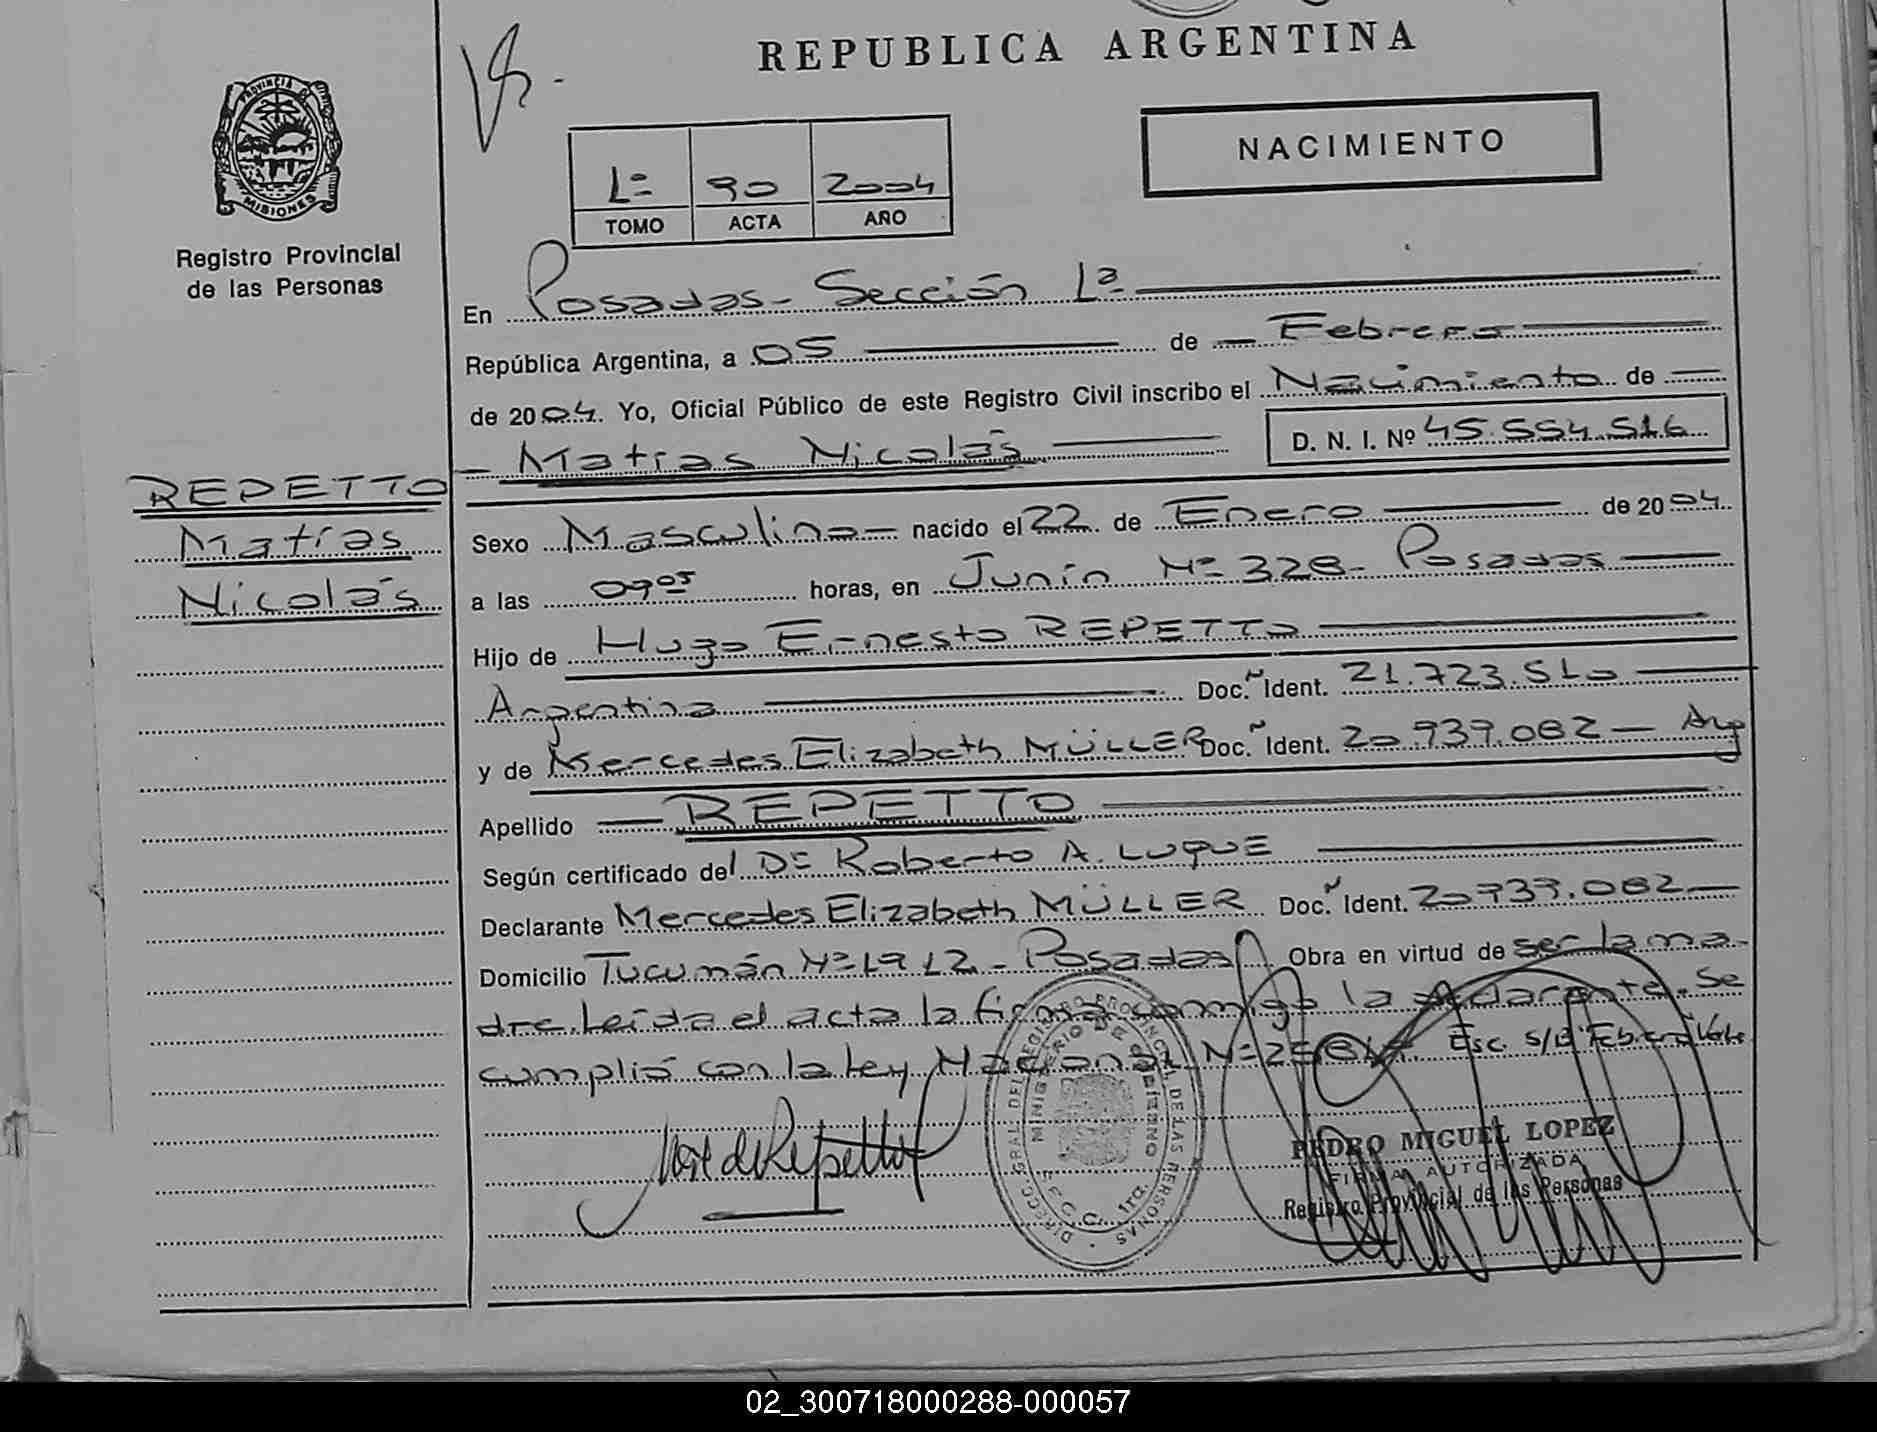 REPUBLICA ARGENTINA
PROVINCIA DE
MISIONES
Registro Provincial
de las Personas
NACIMIENTO
1º 90 2004
TOMO ACTA AÑO
En Posadas - Sección 1ª
República Argentina, a 05 de Febrero
de 2004. Yo, Oficial Público de este Registro Civil inscribo el Nacimiento de
Matías Nicolás D. N. I. Nº 45.554.516
REPETTO
Matías
Nicolás
Sexo Masculino nacido el 22 de Enero de 2004
a las 09 05 horas, en Junín Nº 328 - Posadas
Hijo de Hugo Ernesto REPETTO
Argentina Doc. Ident. 21.723.510
y de Mercedes Elizabeth MÜLLER Doc. Ident. 20.939.082 - Arg
Apellido REPETTO
Según certificado del Dr Roberto A. LUQUE
Declarante Mercedes Elizabeth MÜLLER Doc. Ident. 20.939.082
Domicilio Tucumán Nº 1912 - Posadas Obra en virtud de ser la ma-
dre. Leída el acta la firma conmigo la declarante. Se
cumplió con la Ley Nacional Nº Esc. S/B Febrero Vale
de Repetto
DIRECC. GRAL DEL REGISTRO PROVINCIAL DE LAS PERSONAS
MINISTERIO DE GOBIERNO
1ra.
PEDRO MIGUEL LOPEZ
FIRMA AUTORIZADA
Registro Provincial de las Personas
02_300718000288-000057